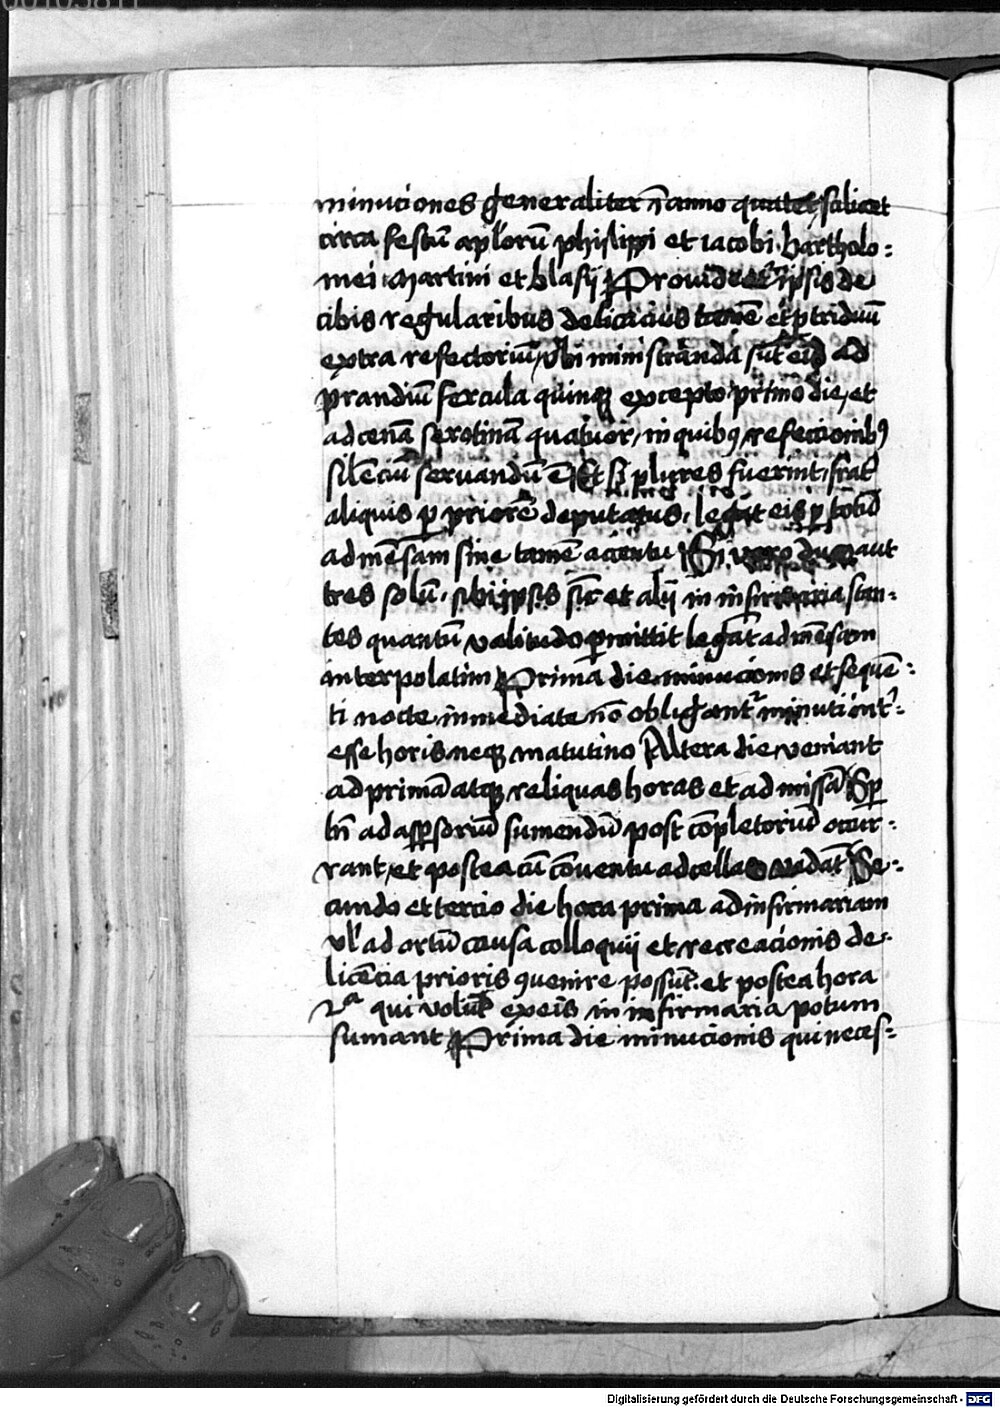 minuciones generaliter ī anno quater scilicet
circa festū apl'orū philippi et iacobi. bartholo:
mei martini et blasij Prouidēt ipsis de
cibis regularibus delicacius tamē et p triduū
extra refectoriū, vbi ministranda sūt eis ad
prandiū fercula quinqꝫ excepto primo die, et
ad cenā serotinā quatuor, in quibꝯ refectionibꝯ
silenciū seruandū ē Et si plures fuerint, frat'
aliquis p priorē deputatus, legat eis p totū
ad mēsam sine tamē accentu Si vero duo aut
tres solū. sibi ipsis sic et alij in infirmaria stan:
tes quantū valitudo pmittit legāt ad mēsam
interpolatim Prima die minucionis et sequē:
ti nocte inmediate nō obligant' minuti int':
esse horis neqꝫ matutino Altera die veniant
ad primā atqꝫ reliquas horas et ad missā Sp
ad aspsoriū sumendū post cōpletoriū occur:
rant, et postea cū cōuentu ad cellas vadāt Se:
cundo et tercio die hora prima ad infirmariam
vl' ad ortū causa colloquij et recreacionis de
licēcia prioris ꝯuenire possūt. et postea hora
2ª qui volūt ex eis in infirmaria potum
sumant Prima die minucionis qui neces:
Digitalisierung gefördert durch die Deutsche Forschungsgemeinschaft - DFG